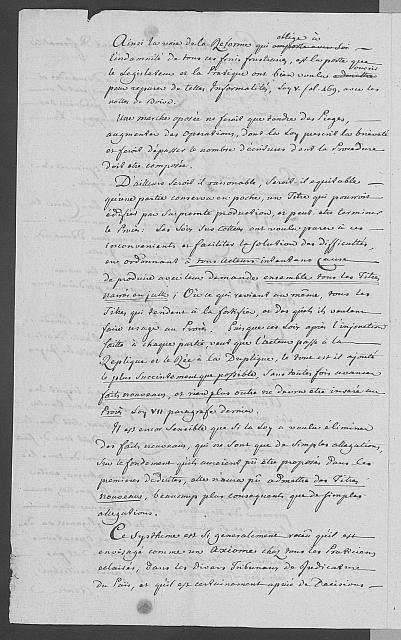 oblige à
Ainsi la voie de la Reforme qui emporte avec soi
l'indemnité de tous ces frais frustrans, est la porte que
le Legislateur et la Pratique ont bien voulu admettre ouvrir
pour reparer de telles Informalités, Loy V. fol. 469, avec les
nottes de Boive.
Une marche oposée ne feroit que tendre des Pieges,
augmenter des operations, dont la Loy prescrit la briéveté
et feroit dépasser le nombre d'écritures dont la Procedure
doit être composée.
D'ailleurs seroit il raisonable, seroit il equitable
qu'une partie conserve en poche, un Titre qui pourroit
édifier par sa prompte production, et peut être terminer
le Procès: Les Loix sus cottées ont voulu parer à ces
inconvenients et faciliter la Solution des difficultés,
en ordonnant à tous acteurs intentans Cause
de produire avec leur demandes ensemble tous les Titres
narrés en icelle; Or ce qui revient au même, tous les
Titres qui tendent à la fortifier, et des quels ils veulent
faire usage au Procès. Puis que ces Loix après l'injonction
faite à chaque partie, veut que l'acteur passe à la
Replique et le Rée à la Duplique, le tout est il ajouté
le plus succintement que possible, sans toutes fois avancer
faits nouveaux, et rien plus outre ne devra être inseré au
Procès Loy VII paragrafe dernier.
Il est encor sensible que si la Loy a voulu éliminer
des faits nouveaux, qui ne sont que de simples allegations,
sur le fondement qu'ils auroient pû être proposés dans les
premieres deductes, elle n'auroit pû admettre des Titres
nouveaux, beaucoup plus consequents que de simples
allegations.
Ce systheme est si generalement recû qu'il est
envisagé comme un Axiome chez tous les Praticiens
eclairés, dans les divers Tribunaux de Judicature
du Païs, et qu'il est certainement apuié de Decisions